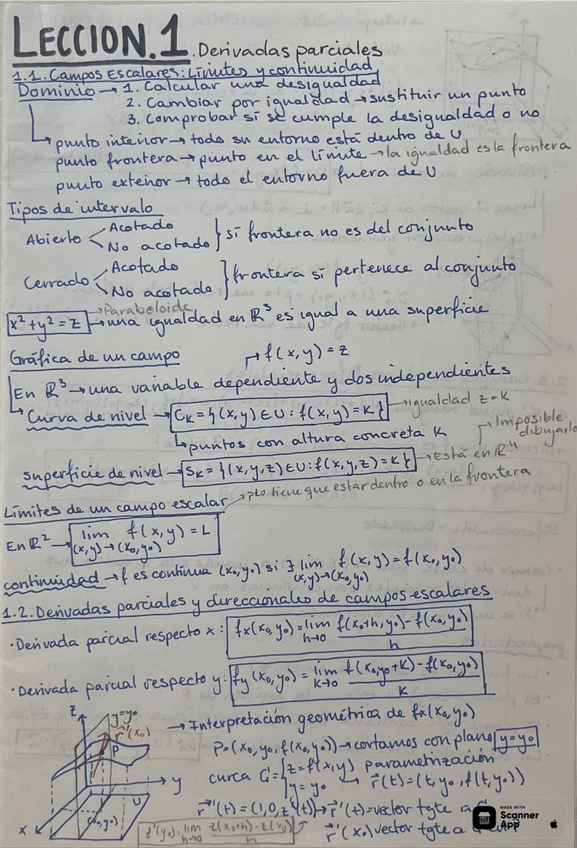 LECCION.1. Derivadas parciales
1.1. Campos Escalares: Límites y continuidad
Dominio → 1. Calcular una desigualdad
2. Cambiar por igualdad → sustituir un punto
3. Comprobar si se cumple la desigualdad o no
punto interior → todo su entorno está dentro de U
punto frontera → punto en el límite → la igualdad es la frontera
punto exterior → todo el entorno fuera de U
Tipos de intervalo
Abierto < Acotado
No acotado } si frontera no es del conjunto
Cerrado < Acotado
No acotado } frontera si pertenece al conjunto
→ Paraboloide
x² + y² = z → una igualdad en ℝ³ es igual a una superficie
Gráfica de un campo → f(x,y) = z
En ℝ³ → una variable dependiente y dos independientes
Curva de nivel → Cₖ = {(x,y) ∈ U : f(x,y) = K} → igualdad z = K
↳ puntos con altura concreta K
Imposible dibujarlo
superficie de nivel → Sₖ = {(x,y,z) ∈ U : f(x,y,z) = K} → Está en ℝ⁴
Límites de un campo escalar → pto tiene que estar dentro o en la frontera
En ℝ² → lim f(x,y) = L
(x,y) → (x₀,y₀)
continuidad → f es continua (x₀,y₀) si ∃ lim f(x,y) = f(x₀,y₀)
(x,y) → (x₀,y₀)
1.2. Derivadas parciales y direccionales de campos escalares
· Derivada parcial respecto x: fx(x₀,y₀) = lim h→0 f(x₀+h, y₀) - f(x₀,y₀) / h
· Derivada parcial respecto y: fy(x₀,y₀) = lim k→0 f(x₀,y₀+K) - f(x₀,y₀) / K
→ Interpretación geométrica de fx(x₀,y₀)
P = (x₀, y₀, f(x₀,y₀)) → cortamos con plano y = y₀
curca C = { z = f(x,y) parametrización
y = y₀ → r⃗(t) = (t, y₀, f(t,y₀))
r⃗'(t) = (1, 0, z'(t)) → r⃗'(t) = vector tgte a C
r⃗'(x₀) vector tgte a C
z'(x₀): lim h→0 z(x₀+h) - z(x₀) / h
z
y = y₀
r⃗'(x₀)
P
y
U
(x₀,y₀)
x
MADE WITH
Scanner
App